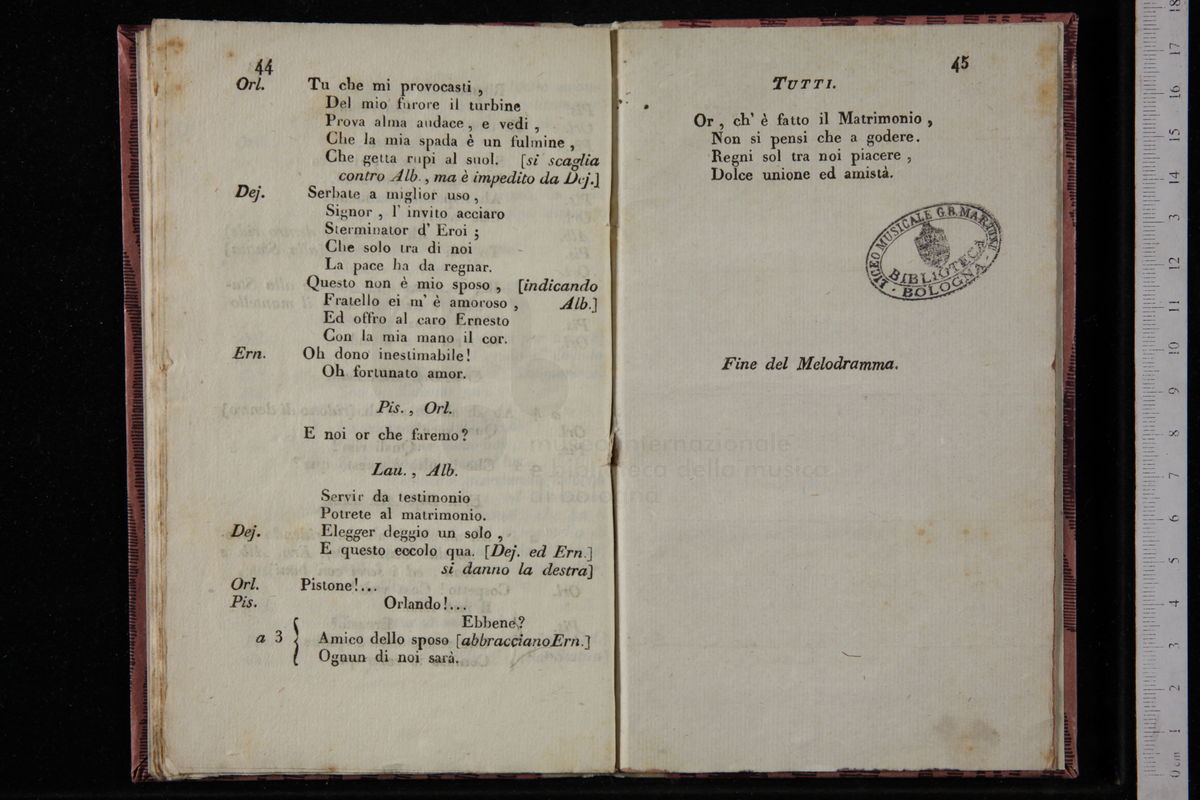 44
Orl. Tu che mi provocasti ,
Del mio furore il turbine
Prova alma audace , e vedi ,
Che la mia spada è un fulmine ,
Che getta rupi al suol. [si scaglia
contro Alb. , ma è impedito da Dej.]
Dej. Serbate a miglior uso ,
Signor , l' invito acciaro
Sterminator d' Eroi ;
Che solo tra di noi
La pace ha da regnar.
Questo non è mio sposo , [indicando
Fratello ei m' è amoroso , Alb.]
Ed offro al caro Ernesto
Con la mia mano il cor.
Ern. Oh dono inestimabile!
Oh fortunato amor.
Pis. , Orl.
E noi or che faremo?
Lau. , Alb.
Servir da testimonio
Potrete al matrimonio.
Dej. Elegger deggio un solo ,
E questo eccolo qua. [Dej. ed Ern.]
si danno la destra]
Orl. Pistone!...
Pis. Orlando!...
Ebbene?
a 3 { Amico dello sposo [abbraccianoErn.]
Ognun di noi sarà.
45
TUTTI.
Or , ch' è fatto il Matrimonio ,
Non si pensi che a godere.
Regni sol tra noi piacere ,
Dolce unione ed amistà.
LICEO MUSICALE G.B. MARTINI
BIBLIOTECA
- BOLOGNA -
Fine del Melodramma.
museo internazionale
e biblioteca della musica
di bologna
0 cm 1 2 3 4 5 6 7 8 9 10 11 12 13 14 15 16 17 18